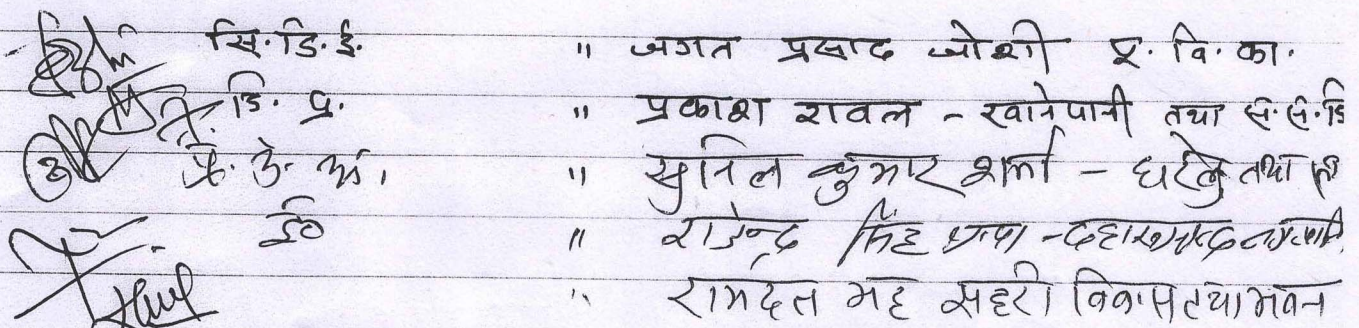 सि. डि. ई. " जगत प्रसाद जोशी ए. वि. का.
डि. प्र. " प्रकाश रावल - खानेपानी तथा स. स. डि
" सुनिल कुमार शर्मा - घरेलु तथा
ई० " राजेन्द्र सिंह थापा -
" रामदत्त भट्ट सहरी विकास तथा भवन